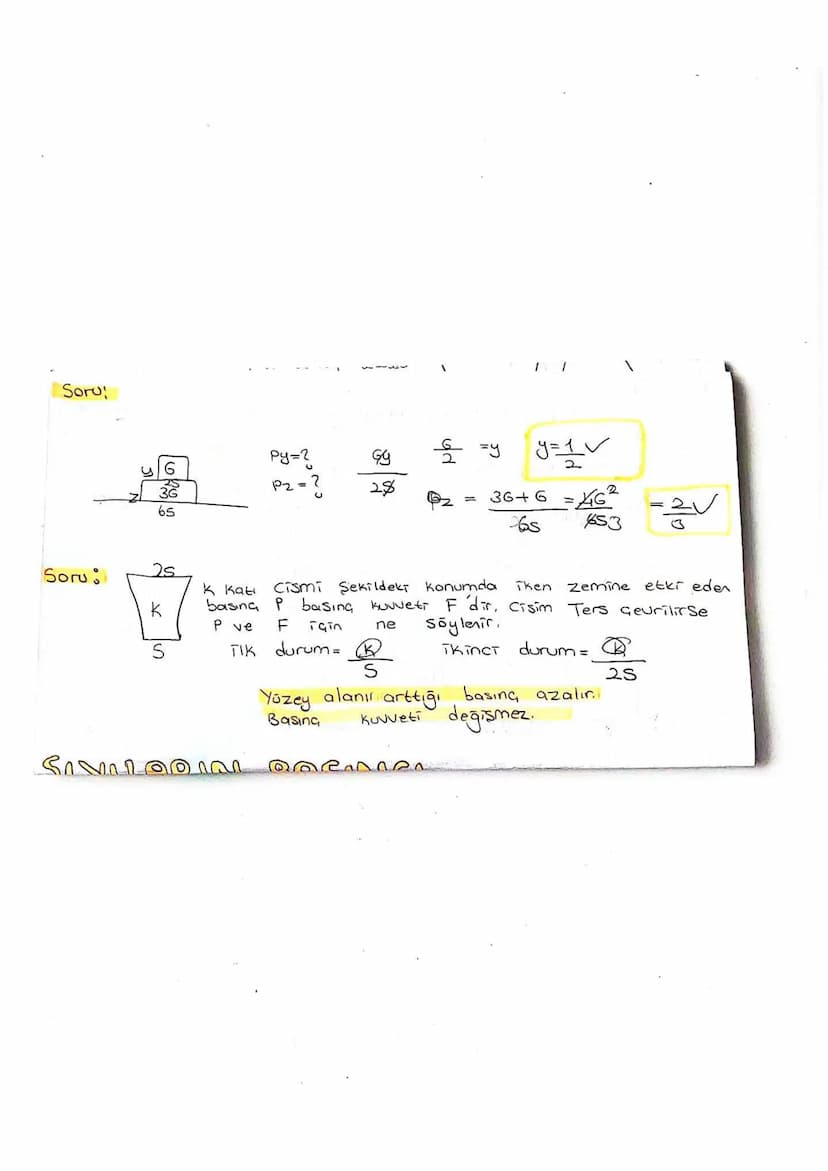 Soru:
y G
2S
z 3G
6S
Py=?
Pz=?
Gy
2S
G/2 =y
y=1/2 ✓
Pz = 3G+G/6S = 4G2/6S3 = 2/3 ✓
Soru:
2S
K
S
K Katı Cismi Şekildeki Konumda iken zemine etki eden
basınç P basınç kuvveti F'dir. Cisim Ters çevrilirse
P ve F için ne söylenir.
ilk durum= K/S ikinci durum= K/2S
Yüzey alanı arttığı basınç azalır.
Basınç kuvveti değişmez.
SIVILARIN BASINCI